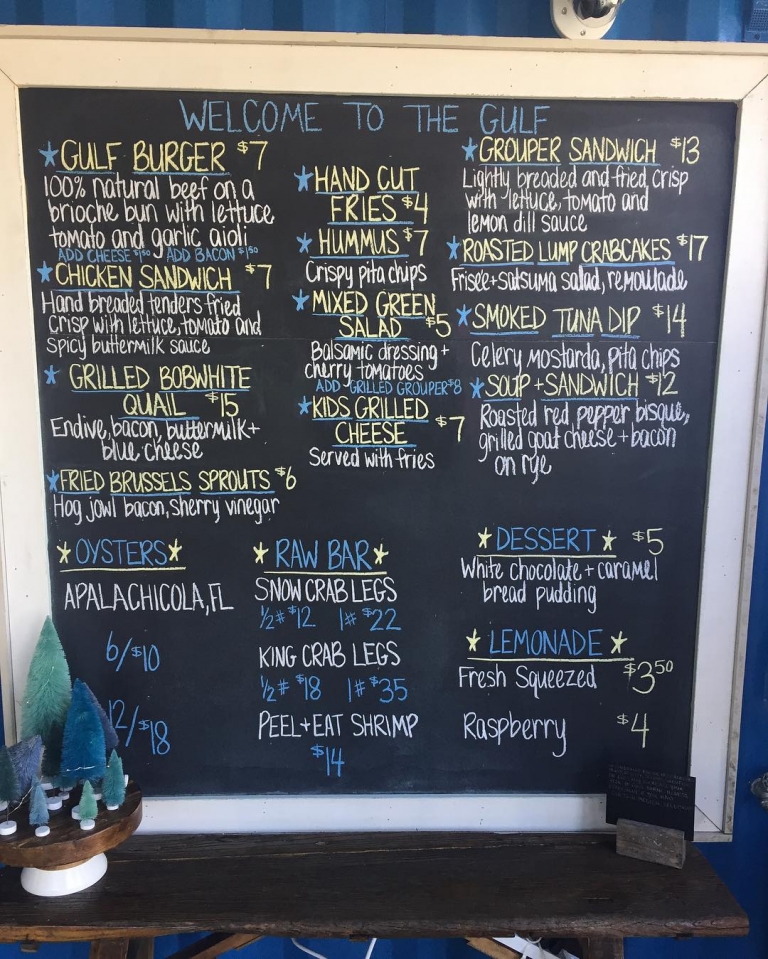 WELCOME TO THE GULF
★GULF BURGER $7
100% natural beef on a
brioche bun with lettuce
tomato and garlic aioli
ADD CHEESE $1.50 ADD BACON $1.50
★CHICKEN SANDWICH $7
Hand breaded tenders fried
crisp with lettuce, tomato and
spicy buttermilk sauce
★ GRILLED BOBWHITE
QUAIL $15
Endive, bacon, buttermilk+
blue cheese
★FRIED BRUSSELS SPROUTS $6
Hog jowl bacon, sherry vinegar
★HAND CUT
FRIES $4
★HUMMUS $7
Crispy pita chips
★MIXED GREEN
SALAD $5
Balsamic dressing +
cherry tomatoes
ADD GRILLED GROUPER $8
★KIDS GRILLED
CHEESE $7
Served with fries
★GROUPER SANDWICH $13
Lightly breaded and fried, crisp
with lettuce, tomato and
lemon dill sauce
★ROASTED LUMP CRABCAKES $17
Frisée+satsuma salad, remoulade
★SMOKED TUNA DIP $14
Celery mostarda, pita chips
★SOUP+SANDWICH $12
Roasted red pepper bisque,
grilled goat cheese + bacon
on rye
★OYSTERS★
APALACHICOLA, FL
6/$10
12/$18
★ RAW BAR★
SNOW CRAB LEGS
½# $12 1# $22
KING CRAB LEGS
½# $18 1# $35
PEEL+EAT SHRIMP
$14
★DESSERT★ $5
White chocolate + caramel
bread pudding
★ LEMONADE ★
Fresh Squeezed $3.50
Raspberry $4